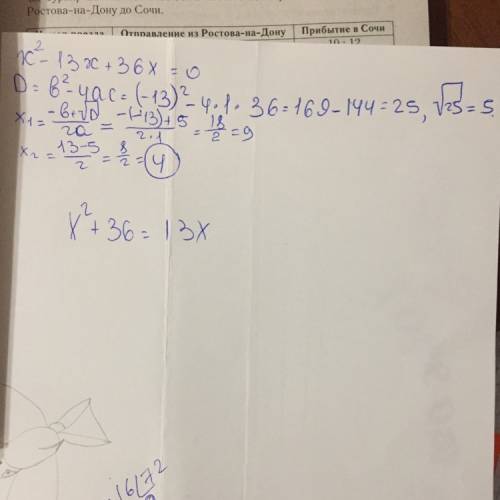 Ростова-на-Дону до Сочи.
Отправление из Ростова-на-Дону Прибытие в Сочи
x² - 13x + 36x = 0
D = b² - 4ac = (-13)² - 4·1·36 = 169 - 144 = 25, √25 = 5.
x₁ = (-b+√D)/2a = (-(-13)+5)/2·1 = 18/2 = 9
x₂ = (13-5)/2 = 8/2 = 4
x² + 36 = 13x